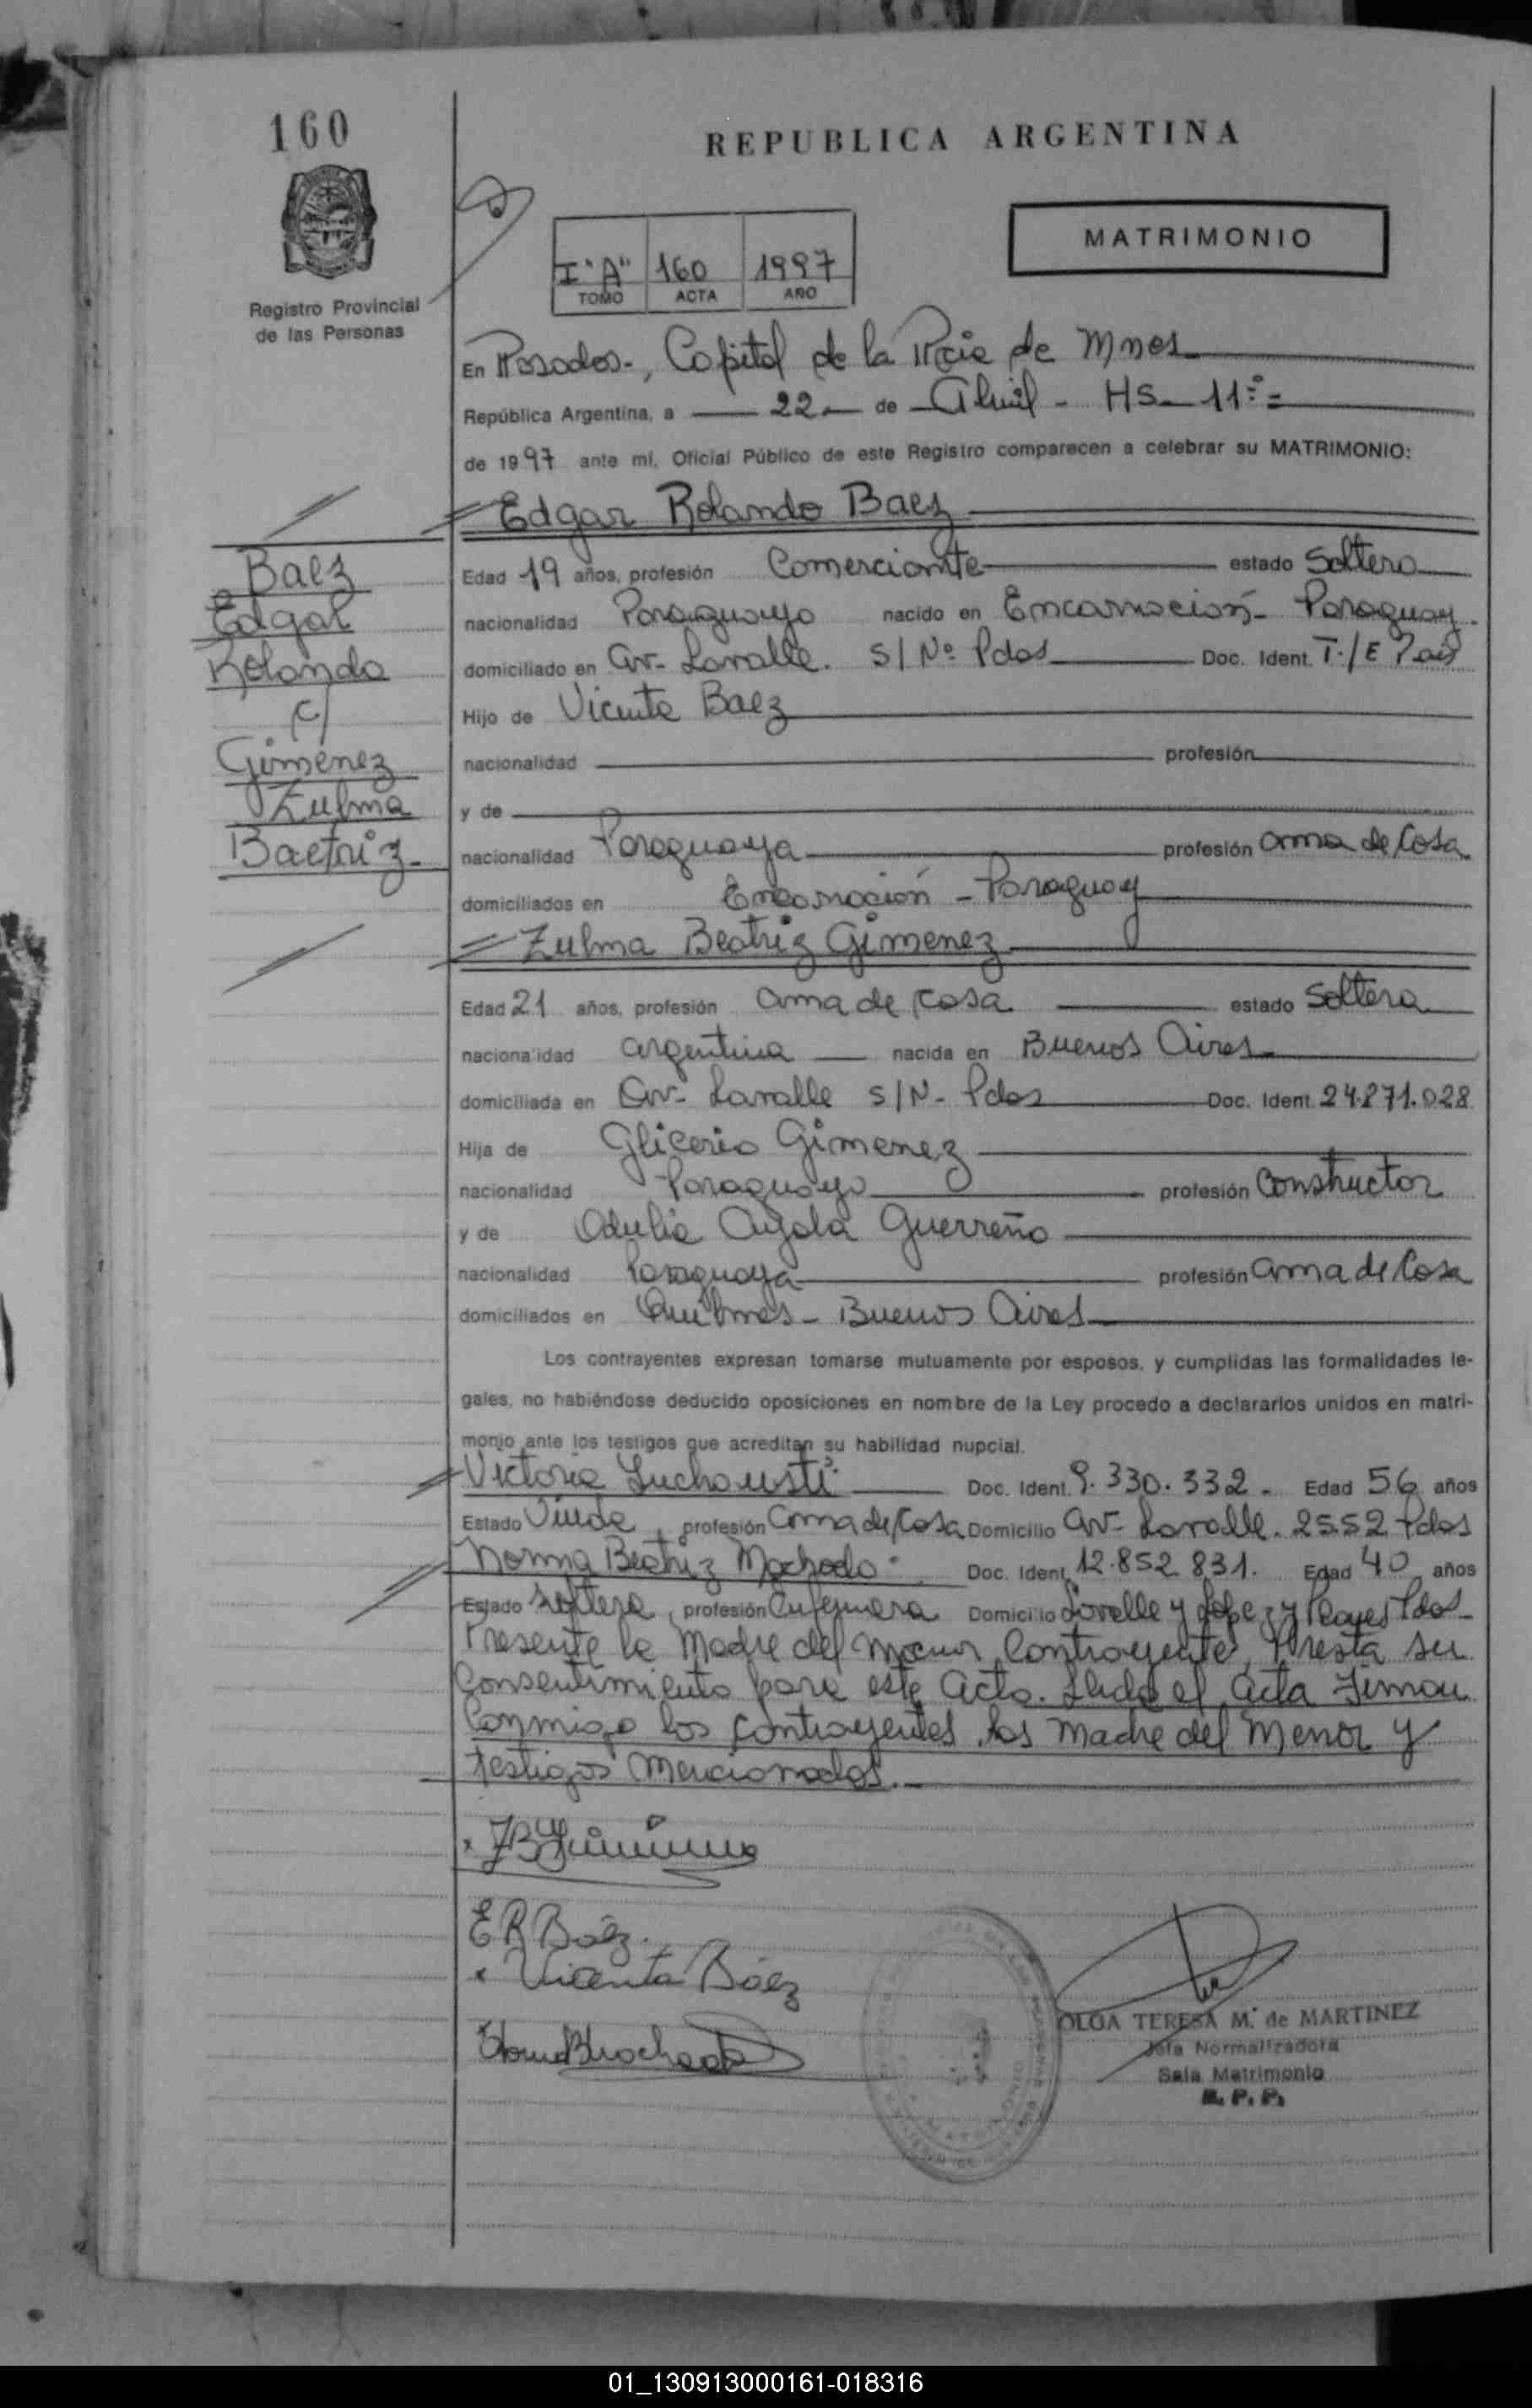 160
REPUBLICA ARGENTINA
MATRIMONIO
Registro Provincial
de las Personas
I "A" 160 1997
TOMO ACTA AÑO
En Posadas-, Capital de la Pcia de Mnes
República Argentina, a 22 de Abril - HS 11
de 1997 ante mí, Oficial Público de este Registro comparecen a celebrar su MATRIMONIO:
Edgar Rolando Baez
Edad 19 años, profesión Comerciante estado Soltero
nacionalidad Paraguayo nacido en Encarnación - Paraguay
domiciliado en Av- Lavalle. S/Nº Pdas Doc. Ident. T./E Pais
Hijo de Vicenta Baez
nacionalidad profesión
y de
nacionalidad Paraguaya profesión ama de Casa
domiciliados en Encarnación - Paraguay
Zulma Beatriz Gimenez
Edad 21 años, profesión ama de casa estado Soltera
nacionalidad argentina nacida en Buenos Aires
domiciliada en Av- Lavalle S/N- Pdas Doc. Ident. 24.271.028
Hija de Glicerio Gimenez
nacionalidad Paraguayo profesión Constructor
y de Odulia Ayala Guerreño
nacionalidad Paraguaya profesión ama de Casa
domiciliados en Quilmes - Buenos Aires
Los contrayentes expresan tomarse mutuamente por esposos, y cumplidas las formalidades le-
gales, no habiéndose deducido oposiciones en nombre de la Ley procedo a declararlos unidos en matri-
monio ante los testigos que acreditan su habilidad nupcial.
Victoria Doc. Ident. 9.330.332 - Edad 56 años
Estado Viuda, profesión Ama de Casa Domicilio Av- Lavalle. 2552 Pdas
Norma Beatriz Machado Doc. Ident. 12.852.831. Edad 40 años
Estado soltera, profesión Enfermera Domicilio Lavalle y Lopez y Planes Pdas
Presente la Madre del menor Contrayente, Presta su
Consentimiento para este Acto. Leida el Acta Firman
Conmigo los contrayentes, las Madre del Menor y
testigos Mencionados.
Baez
Edgar
Rolando
c/
Gimenez
Zulma
Baetriz
E R Báez
Vicenta Báez
OLGA TERESA M. de MARTINEZ
Jefa Normalizadora
Sala Matrimonio
R. P. P.
01_130913000161-018316